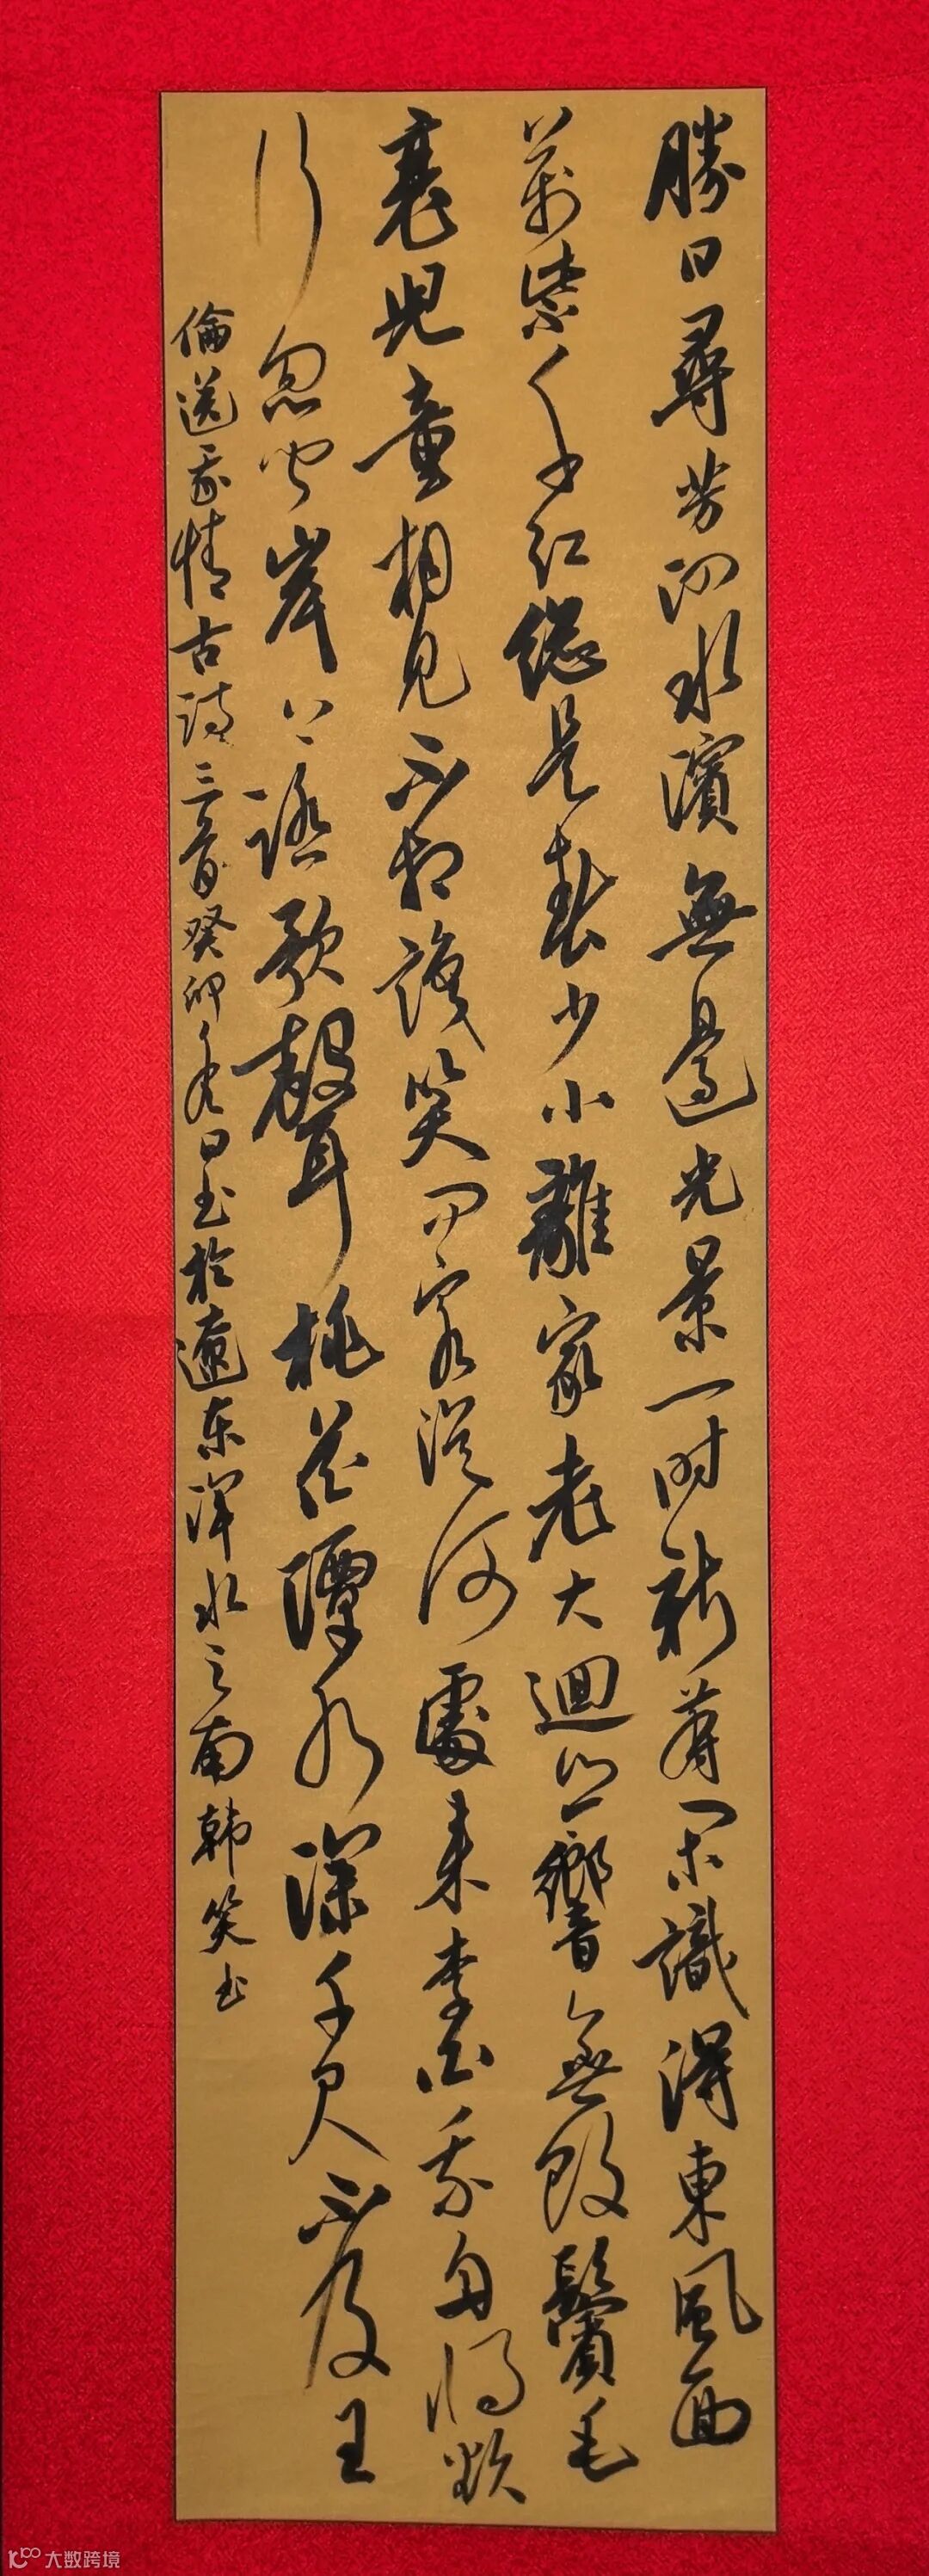 勝日尋芳泗水濱無邊光景一時新等閑識得東風面
萬紫千紅總是春少小離家老大迴鄉音無改鬢毛
衰兒童相見不相識笑問客從何處來李白乘舟將欲
行忽聞岸上踏歌聲桃花潭水深千尺不及汪
倫送我情古詩三首癸卯冬日书於遼东渾水之南韩笑书
大数跨境